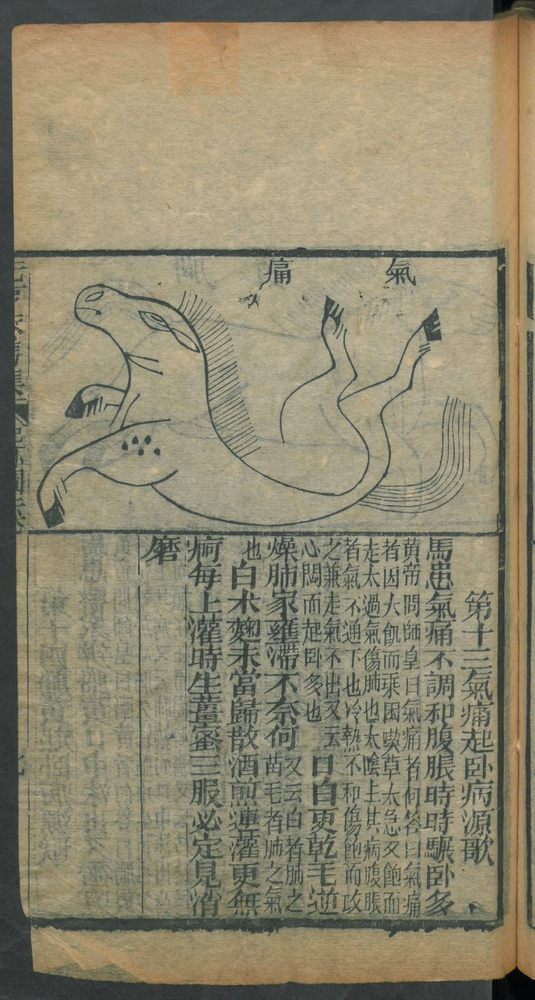 氣痛
第十三氣痛起卧病源歌
馬患氣痛不調和腹脹時時騾卧多
黄帝問師皇曰氣痛者何答曰氣痛
者因大飢而乘困喫草太急又飽而
走太過氣傷肺也太隂上其病腹脹
者氣不通下也冷熱不和傷飽而致
之兼走氣不出又云口白更乾毛逆
心悶而起卧多也
燥肺家壅滯不奈何又云白者肺之
苗毛者肺之氣
也白术麹末當歸散酒煎連灌更無
疴每上灌時生薑蜜三服必定見消
磨